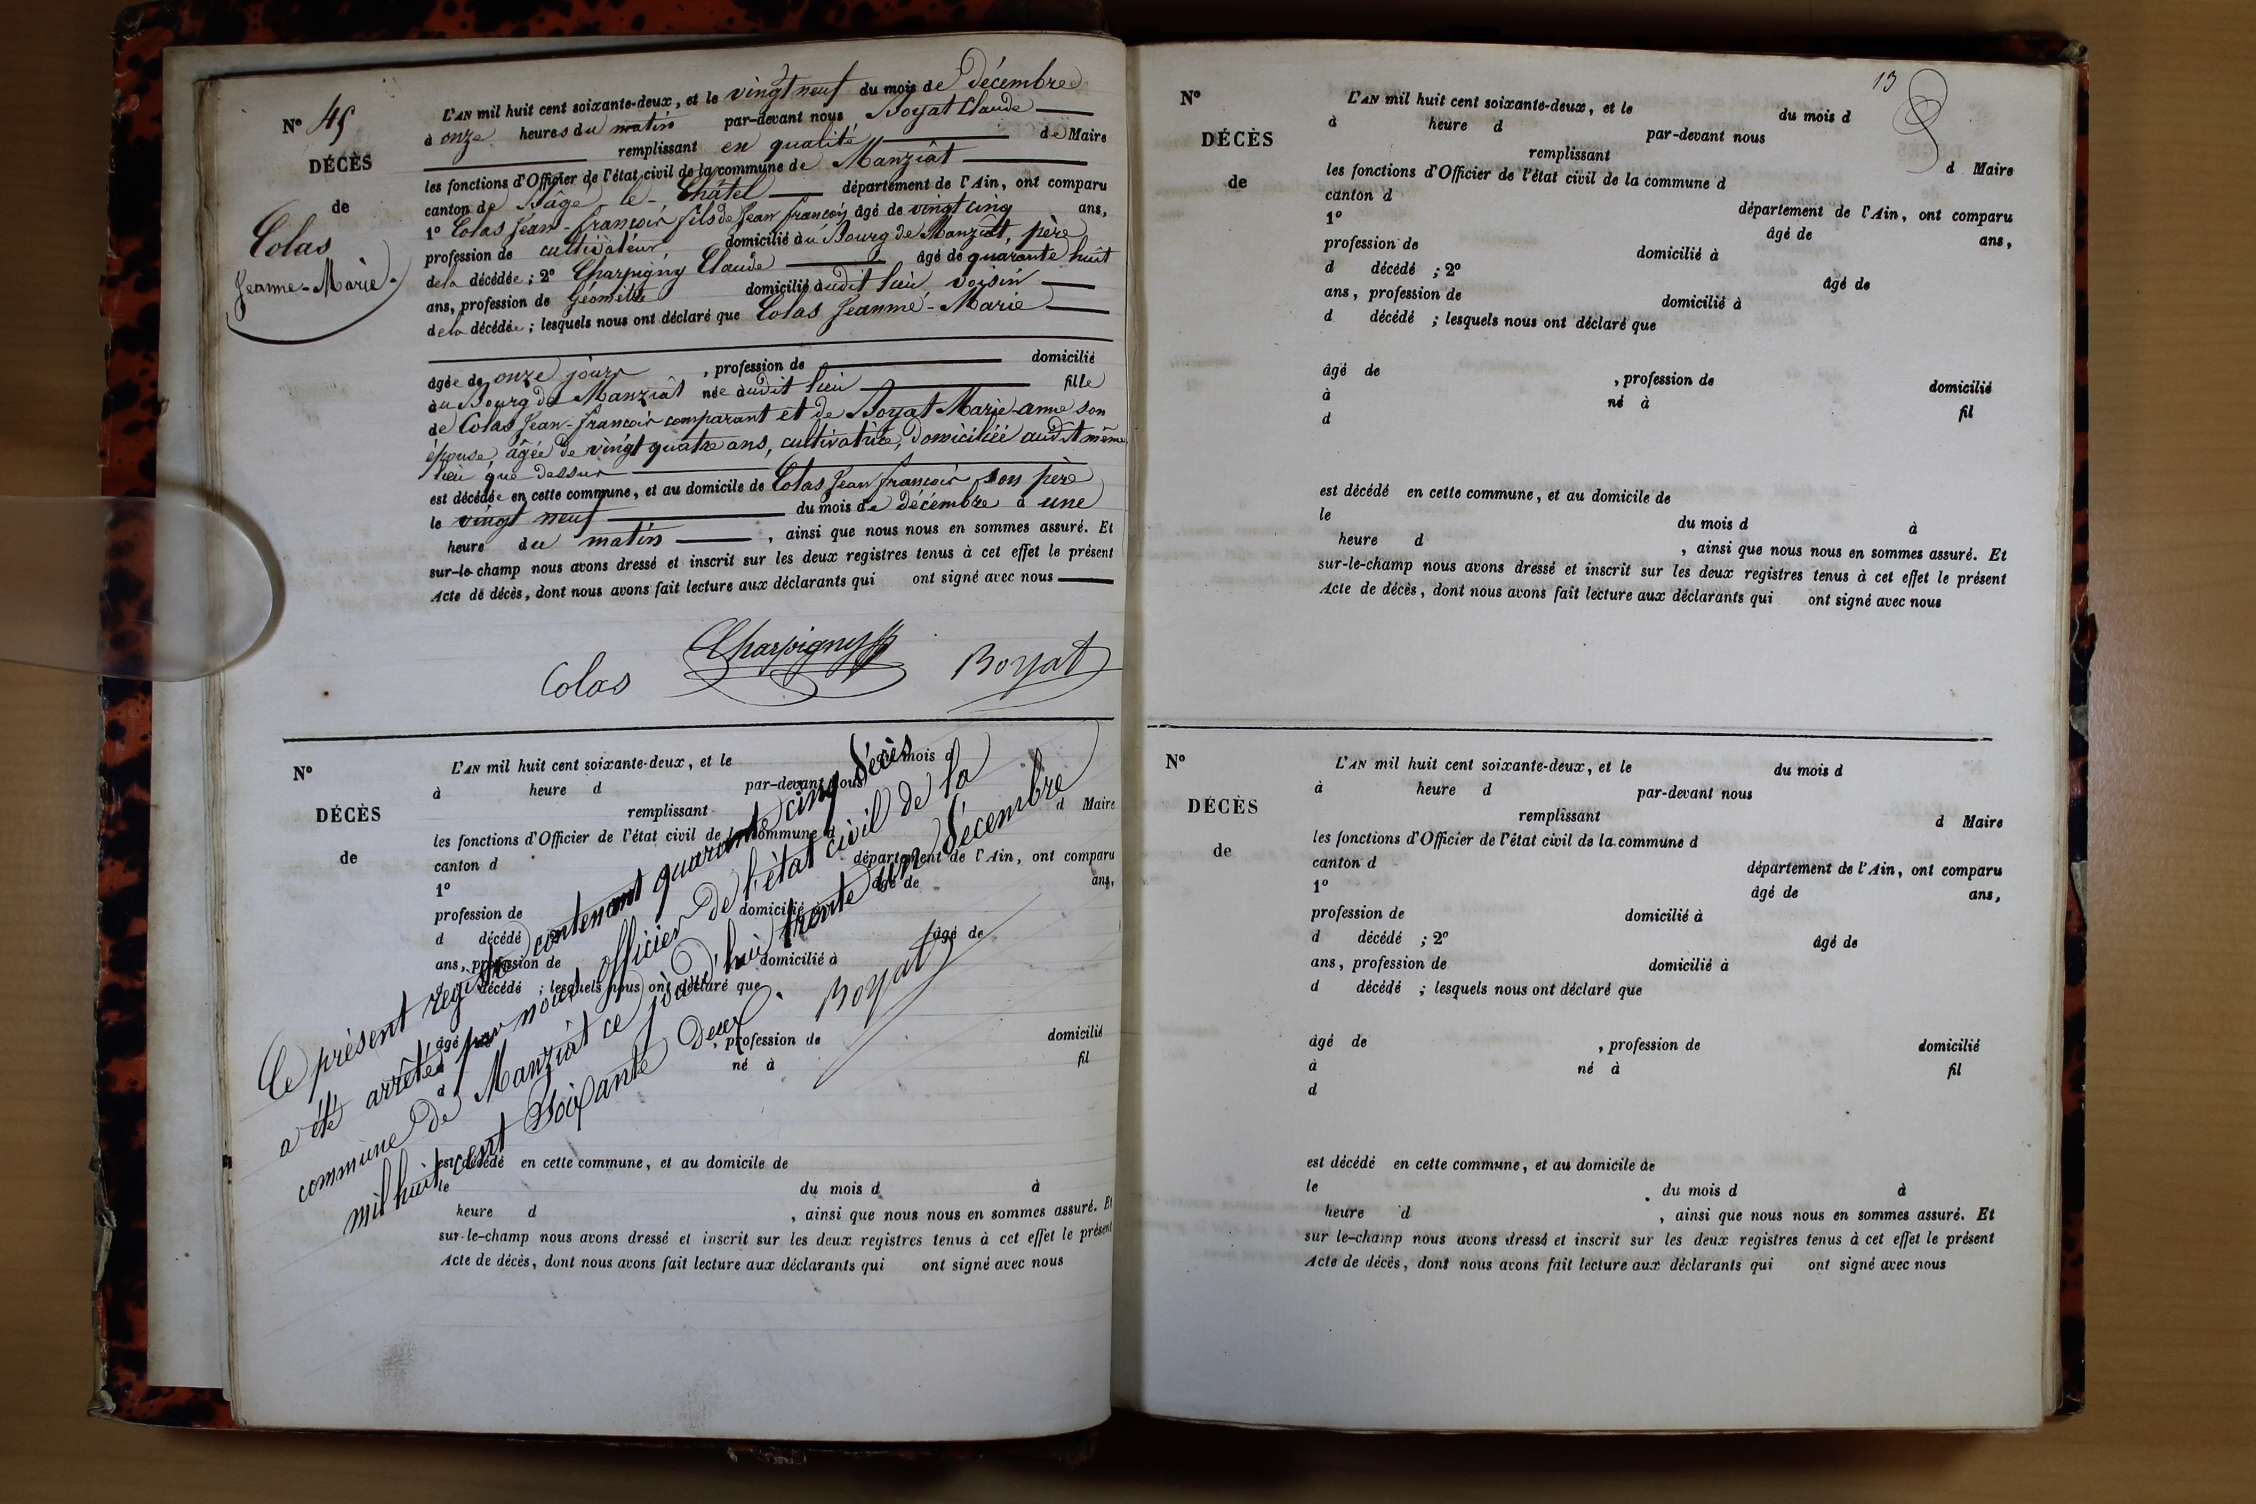 N° 45
DÉCÈS
de
Colas
Jeanne-Marie
L'AN mil huit cent soixante-deux, et le vingt neuf du mois de décembre
à onze heures du matin par-devant nous Boyat Claude
remplissant en qualité de Maire
les fonctions d'Officier de l'état civil de la commune de Manziât
canton de Bâgé-le-Châtel département de l'Ain, ont comparu
1° Colas Jean-françois fils de Jean françois âgé de vingt cinq ans,
profession de cultivateur domicilié au Bourg de Manziât, père
de la décédée ; 2° Charpigny Claude âgé de quarante huit
ans, profession de Géomètre domicilié audit lieu, voisin
de la décédée ; lesquels nous ont déclaré que Colas Jeanne-Marie
âgée de onze jours , profession de domicilié
au Bourg de Manziât née audit lieu fille
de Colas Jean-françois comparant et de Boyat Marie-anne son
épouse, âgée de vingt quatre ans, cultivatrice, domiciliée audit même
lieu que dessus
est décédée en cette commune, et au domicile de Colas Jean françois son père
le vingt neuf du mois de décembre à une
heure du matin , ainsi que nous nous en sommes assuré. Et
sur-le-champ nous avons dressé et inscrit sur les deux registres tenus à cet effet le présent
Acte de décès, dont nous avons fait lecture aux déclarants qui ont signé avec nous
Colas Charpigny Boyat
N°
DÉCÈS
de
L'AN mil huit cent soixante-deux, et le du mois d
à heure d par-devant nous
remplissant d Maire
les fonctions d'Officier de l'état civil de la commune d
canton d département de l'Ain, ont comparu
1° âgé de ans,
profession de domicilié à
d décédé âgé de
ans, profession de domicilié à
d décédé ; lesquels nous ont déclaré que
âgé de , profession de domicilié
à né à fil
d
est décédé en cette commune, et au domicile de
le du mois d à
heure d , ainsi que nous nous en sommes assuré. Et
sur-le-champ nous avons dressé et inscrit sur les deux registres tenus à cet effet le présent
Acte de décès, dont nous avons fait lecture aux déclarants qui ont signé avec nous
Le présent registre contenant quarante cinq décès
a été arrêté par nous officier de l'état civil de la
commune de Manziât ce jourd'hui trente un décembre
mil huit cent soixante deux.
Boyat
13
N°
DÉCÈS
de
L'AN mil huit cent soixante-deux, et le du mois d
à heure d par-devant nous
remplissant d Maire
les fonctions d'Officier de l'état civil de la commune d
canton d département de l'Ain, ont comparu
1° âgé de ans,
profession de domicilié à
d décédé ; 2° âgé de
ans, profession de domicilié à
d décédé ; lesquels nous ont déclaré que
âgé de , profession de domicilié
à né à fil
d
est décédé en cette commune, et au domicile de
le du mois d à
heure d , ainsi que nous nous en sommes assuré. Et
sur-le-champ nous avons dressé et inscrit sur les deux registres tenus à cet effet le présent
Acte de décès, dont nous avons fait lecture aux déclarants qui ont signé avec nous
N°
DÉCÈS
de
L'AN mil huit cent soixante-deux, et le du mois d
à heure d par-devant nous
remplissant d Maire
les fonctions d'Officier de l'état civil de la commune d
canton d département de l'Ain, ont comparu
1° âgé de ans,
profession de domicilié à
d décédé ; 2° âgé de
ans, profession de domicilié à
d décédé ; lesquels nous ont déclaré que
âgé de , profession de domicilié
à né à fil
d
est décédé en cette commune, et au domicile de
le du mois d à
heure d , ainsi que nous nous en sommes assuré. Et
sur le-champ nous avons dressé et inscrit sur les deux registres tenus à cet effet le présent
Acte de décès, dont nous avons fait lecture aux déclarants qui ont signé avec nous